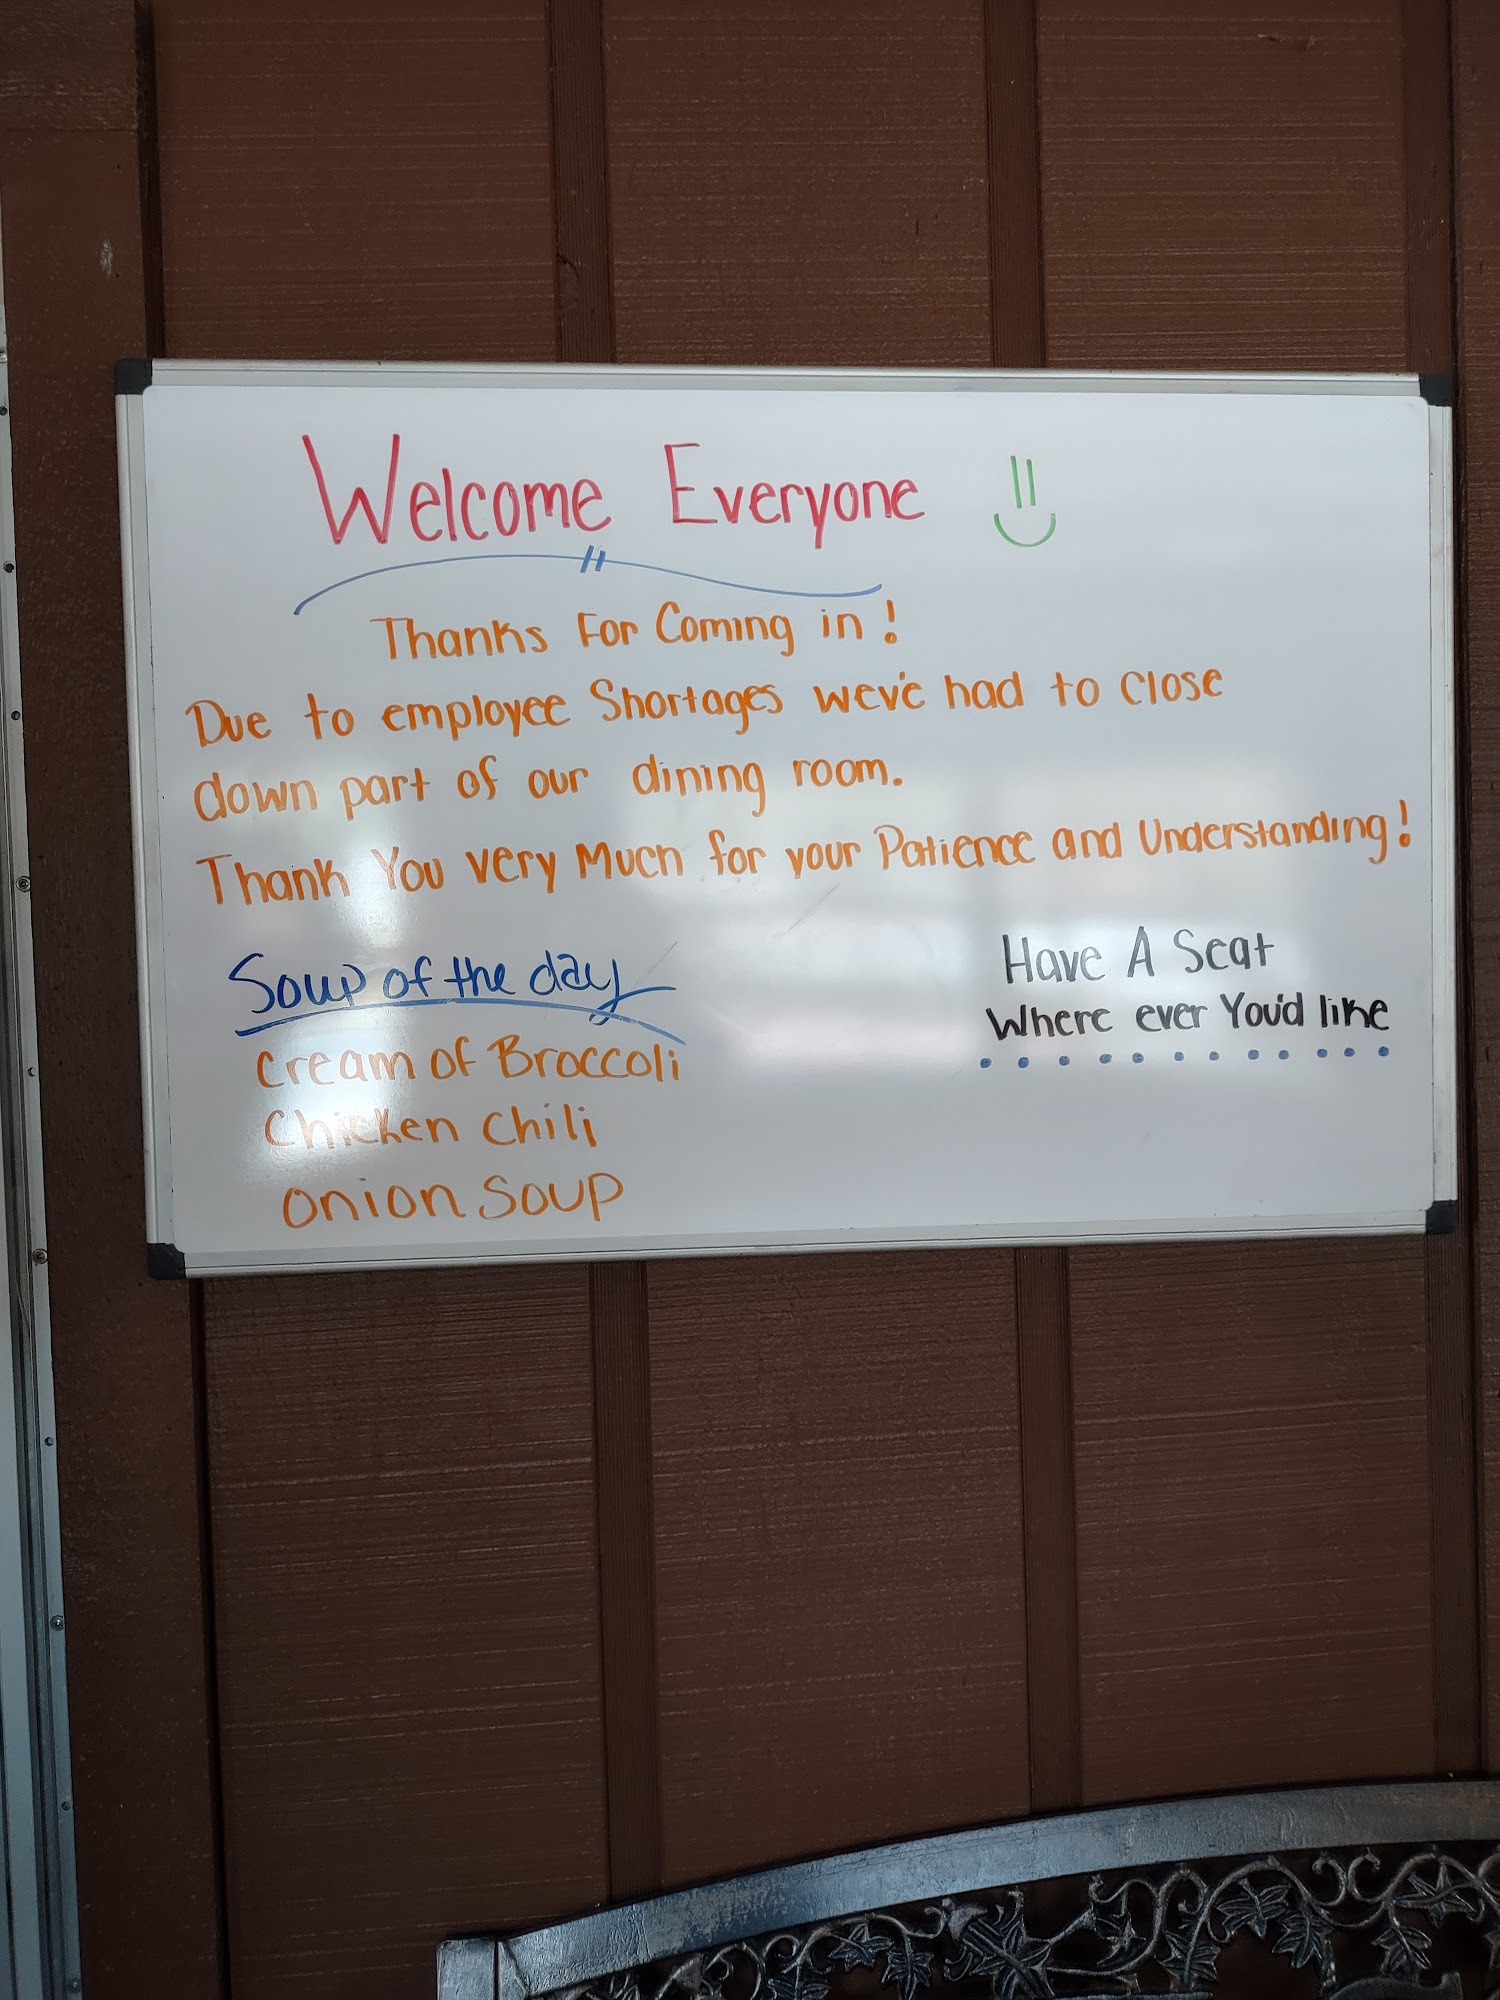 Welcome Everyone
Thanks For Coming in!
Due to employee Shortages wev'e had to close
down part of our dining room.
Thank You very Much for your Patience and Understanding!
Soup of the day
Cream of Broccoli
Chicken Chili
Onion Soup
Have A Seat
Where ever You'd like